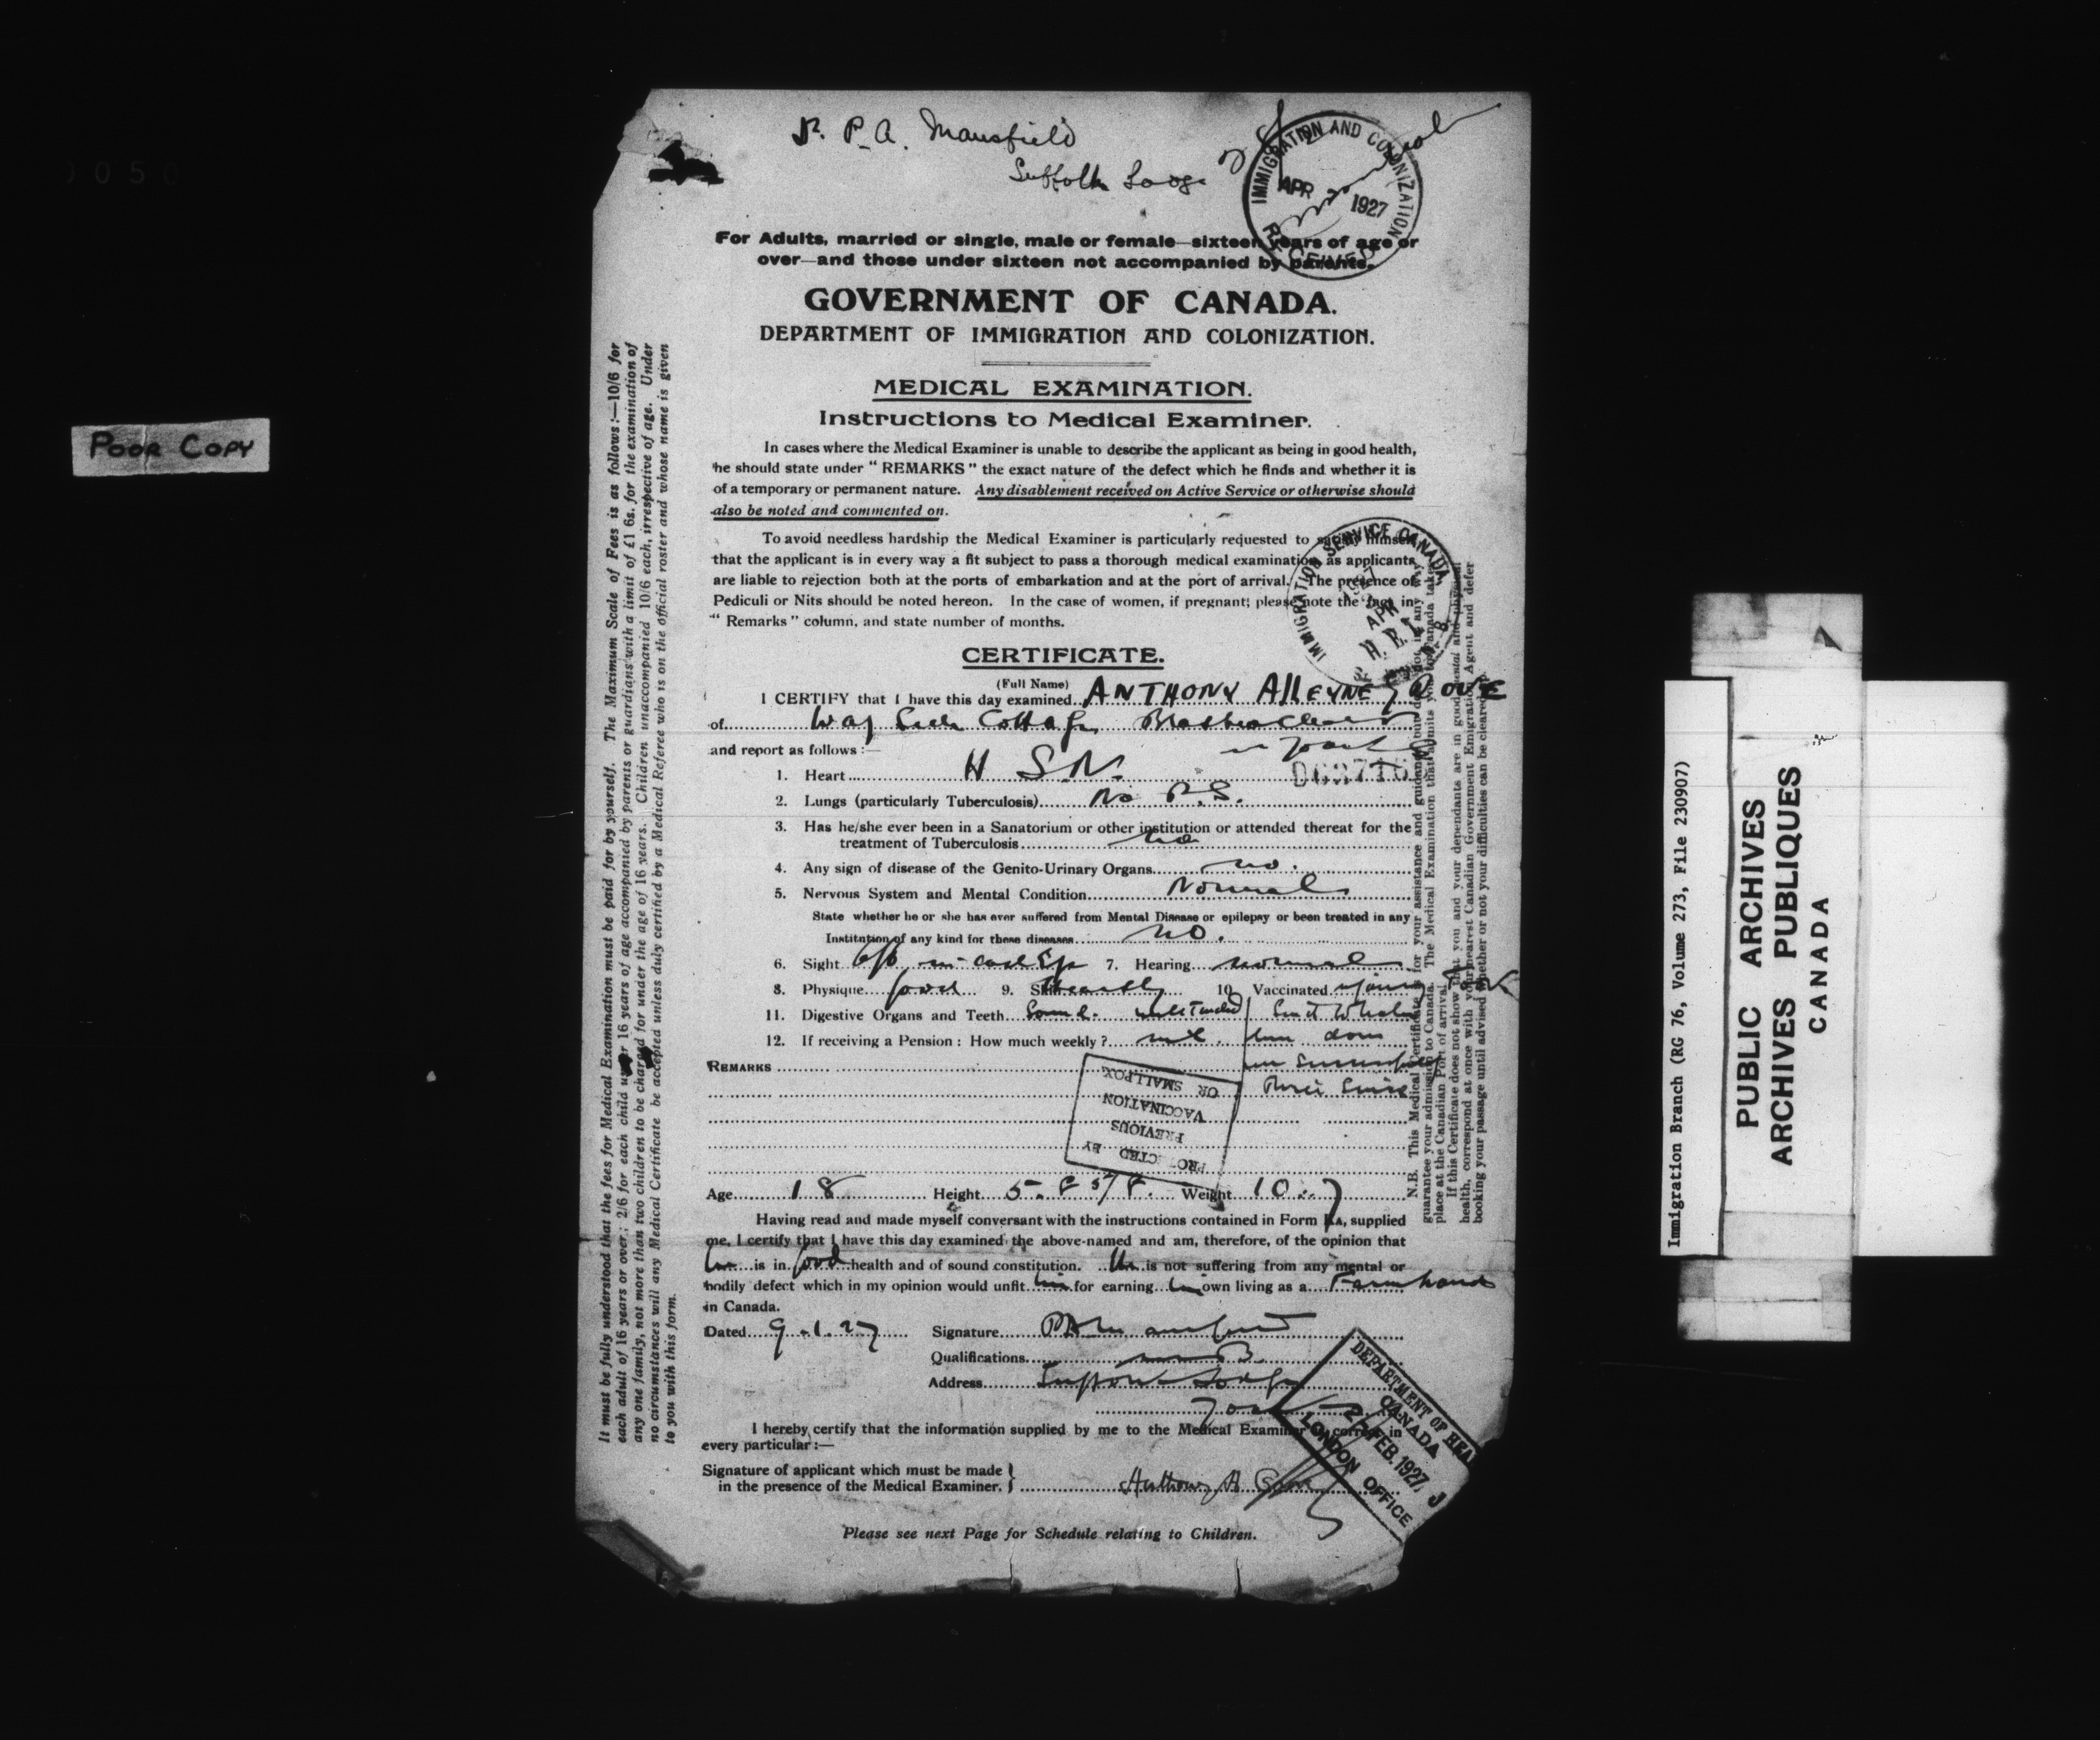 0050
POOR COPY
P. A. Mansfield
Suffolk Lodge
IMMIGRATION AND COLONIZATION
APR 1927
RECEIVED
For Adults, married or single, male or female—sixteen years of age or
over—and those under sixteen not accompanied by parents.
GOVERNMENT OF CANADA.
DEPARTMENT OF IMMIGRATION AND COLONIZATION.
MEDICAL EXAMINATION.
Instructions to Medical Examiner.
In cases where the Medical Examiner is unable to describe the applicant as being in good health,
he should state under "REMARKS" the exact nature of the defect which he finds and whether it is
of a temporary or permanent nature. Any disablement received on Active Service or otherwise should
also be noted and commented on.
To avoid needless hardship the Medical Examiner is particularly requested to satisfy himself
that the applicant is in every way a fit subject to pass a thorough medical examination, as applicants
are liable to rejection both at the ports of embarkation and at the port of arrival. The presence of
Pediculi or Nits should be noted hereon. In the case of women, if pregnant; please note the fact in
"Remarks" column, and state number of months.
IMMIGRATION SERVICE CANADA
1927
APR
CERTIFICATE.
(Full Name)
I CERTIFY that I have this day examined ANTHONY ALLEYNE
of Way Side Cottage
and report as follows:—
1. Heart H S.N.
2. Lungs (particularly Tuberculosis) No P.S.
3. Has he/she ever been in a Sanatorium or other institution or attended thereat for the
treatment of Tuberculosis no
4. Any sign of disease of the Genito-Urinary Organs no.
5. Nervous System and Mental Condition Normal
State whether he or she has ever suffered from Mental Disease or epilepsy or been treated in any
Institution of any kind for these diseases no.
6. Sight 6/6 in each Eye 7. Hearing normal
8. Physique good 9. Skin Healthy 10. Vaccinated
11. Digestive Organs and Teeth Sound.
12. If receiving a Pension: How much weekly? nil
REMARKS
PROTECTED BY
PREVIOUS
VACCINATION
OR SMALLPOX
Age 18 Height 5. Weight 10.7
Having read and made myself conversant with the instructions contained in Form AA, supplied
me, I certify that I have this day examined the above-named and am, therefore, of the opinion that
he is in good health and of sound constitution. He is not suffering from any mental or
bodily defect which in my opinion would unfit him for earning his own living as a Farm hand
in Canada.
Dated 9.1.27 Signature P A Mansfield
Qualifications M B.
Address Suffolk Lodge
York
I hereby certify that the information supplied by me to the Medical Examiner is correct in
every particular:—
Signature of applicant which must be made
in the presence of the Medical Examiner. Anthony A
DEPARTMENT OF HEALTH
CANADA
FEB. 1927
LONDON OFFICE
Please see next Page for Schedule relating to Children.
It must be fully understood that the fees for Medical Examination must be paid for by yourself. The Maximum Scale of Fees is as follows:—10/6 for
each adult of 16 years or over; 2/6 for each child under 16 years of age accompanied by parents or guardians with a limit of £1 6s. for the examination of
any one family, not more than two children to be charged for under the age of 16 years. Children unaccompanied 10/6 each, irrespective of age. Under
no circumstances will any Medical Certificate be accepted unless duly certified by a Medical Referee who is on the official roster and whose name is given
to you with this form.
N.B. This Medical Certificate is for your assistance and guidance but does not in any way
guarantee your admission to Canada. The Medical Examination that admits you to Canada takes
place at the Canadian Port of arrival.
If this Certificate does not show that you and your dependants are in good mental and physical
health, correspond at once with your nearest Canadian Government Emigration Agent and defer
booking your passage until advised whether or not your difficulties can be cleared up.
Immigration Branch (RG 76, Volume 273, File 230907)
PUBLIC ARCHIVES
ARCHIVES PUBLIQUES
CANADA